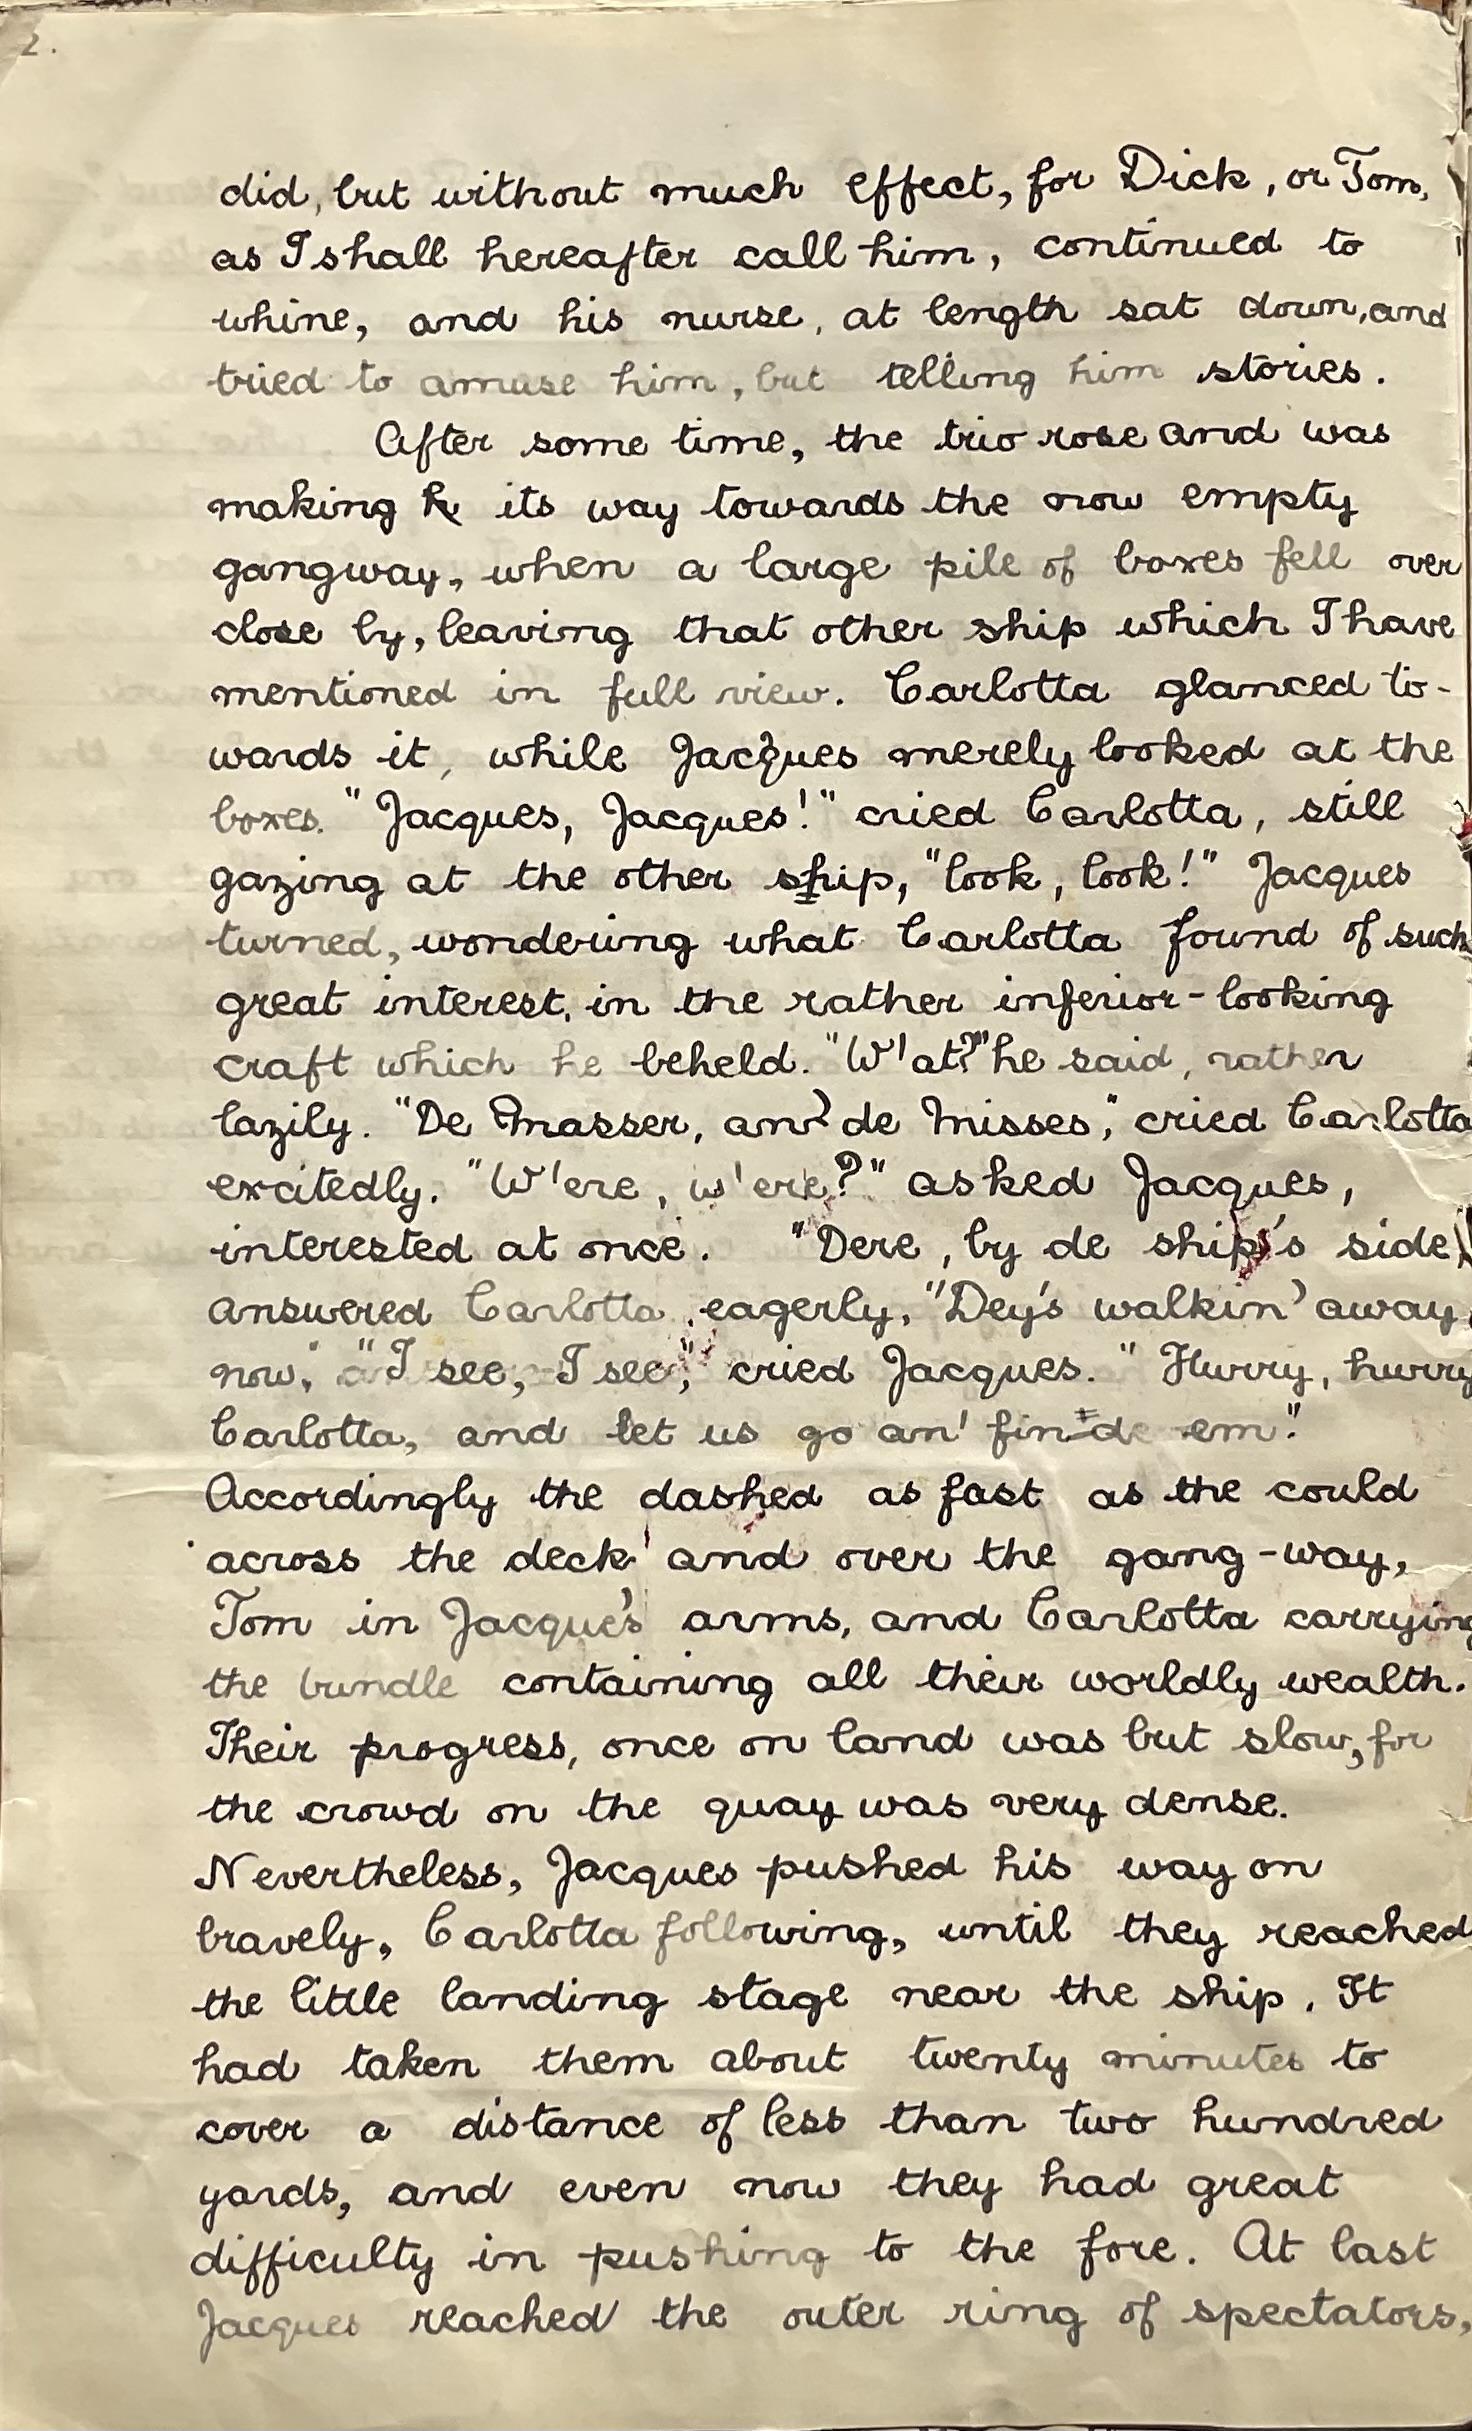 2.
did, but without much effect, for Dick, or Tom,
as I shall hereafter call him, continued to
whine, and his nurse, at length sat down, and
tried to amuse him, but telling him stories.
After some time, the trio rose and was
making its way towards the now empty
gangway, when a large pile of boxes fell over
close by, leaving that other ship which I have
mentioned in full view. Carlotta glanced to-
wards it, while Jacques merely looked at the
boxes. "Jacques, Jacques!" cried Carlotta, still
gazing at the other ship, "look, look!" Jacques
turned, wondering what Carlotta found of such
great interest, in the rather inferior-looking
craft which he beheld. "W'at?" he said, rather
lazily. "De Masser, an' de Misses," cried Carlotta
excitedly. "W'ere, w'ere?" asked Jacques,
interested at once. "Dere, by de ship's side,"
answered Carlotta, eagerly, "Dey's walkin' away,
now," "I see, I see," cried Jacques. "Hurry, hurry
Carlotta, and let us go an' find em."
Accordingly the dashed as fast as the could
across the deck and over the gang-way,
Tom in Jacque's arms, and Carlotta carrying
the bundle containing all their worldly wealth.
Their progress, once on land was but slow, for
the crowd on the quay was very dense.
Nevertheless, Jacques pushed his way on
bravely, Carlotta following, until they reached
the little landing stage near the ship. It
had taken them about twenty minutes to
cover a distance of less than two hundred
yards, and even now they had great
difficulty in pushing to the fore. At last
Jacques reached the outer ring of spectators,